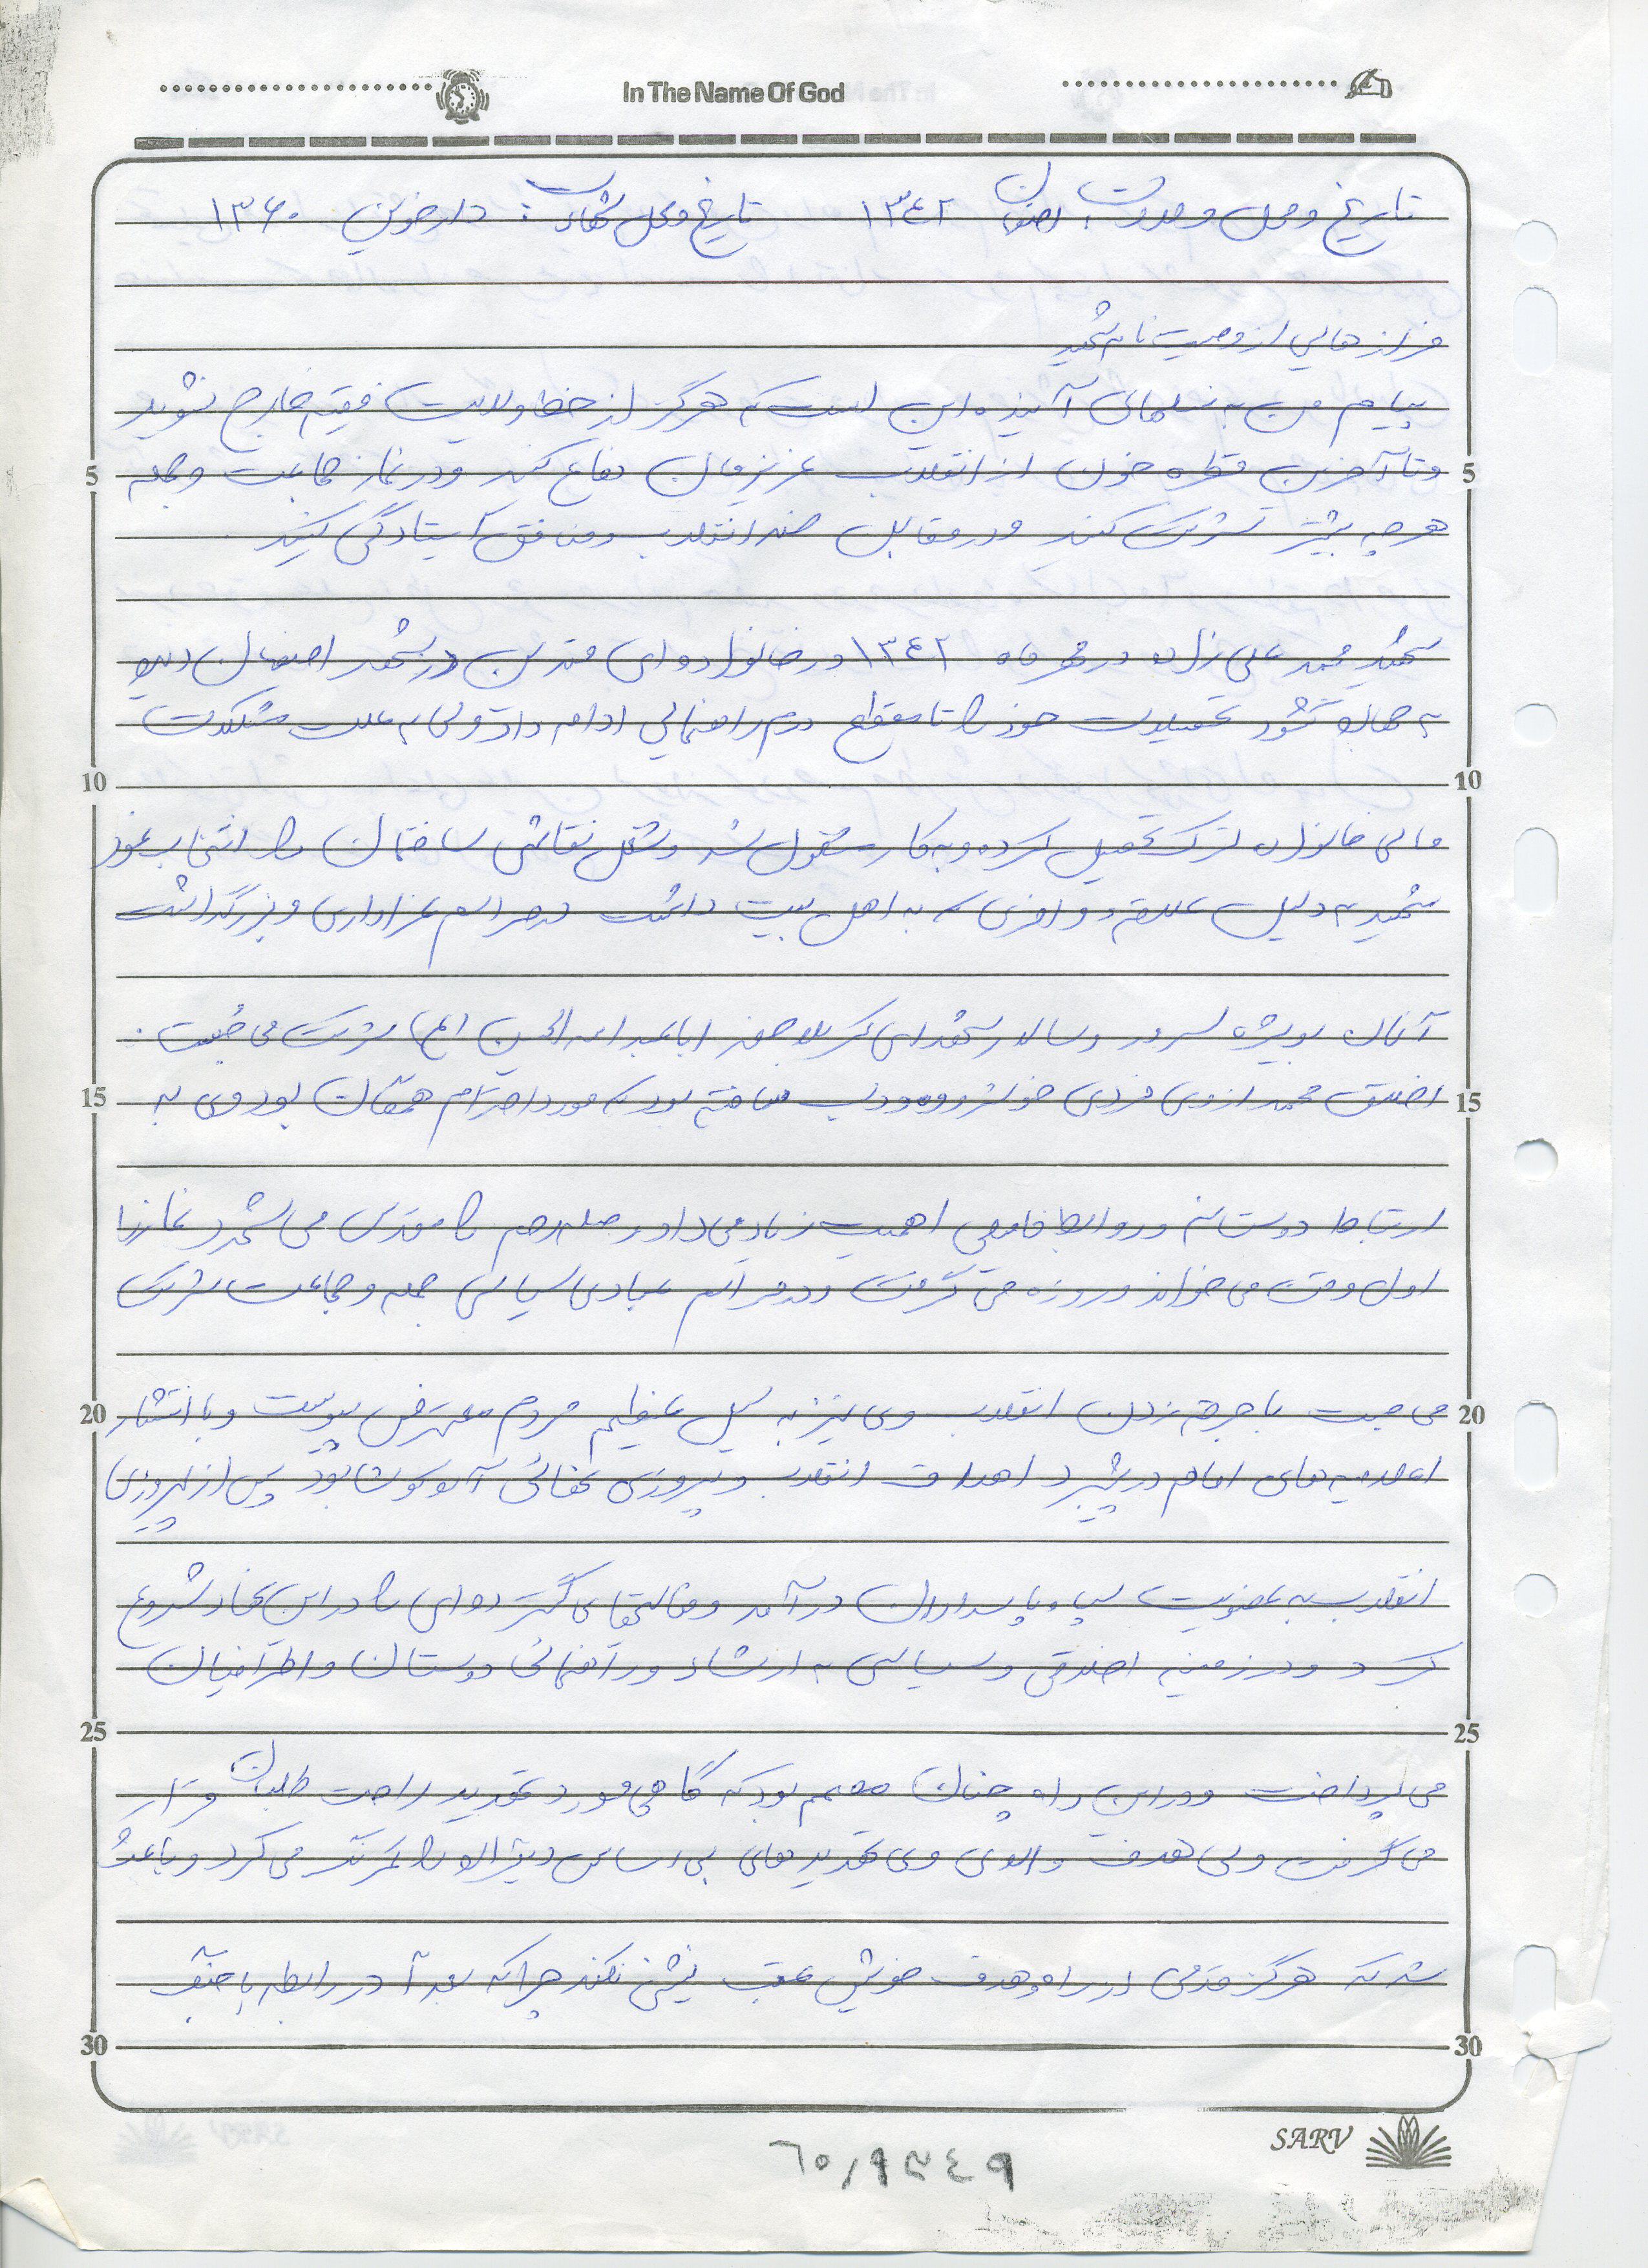 In The Name Of God
تاریخ و محل ولادت: اصفهان ۱۳۴۲ تاریخ و محل شهادت: دارخوین ۱۳۶۰
فرازهایی از وصیت نامه شهید
پیام من به نسلهای آینده این است که هرگز از خط ولایت فقیه خارج نشوید
5 وتا آخرین قطره خون از انقلاب عزیزمان دفاع کنند ودر نماز جماعت وجمعه 5
هرچه بیشتر شرکت کنند ودر مقابل ضد انقلاب ومنافق ایستادگی کنید
شهید محمد علی نژاد در مهر ماه ۱۳۴۲ در خانواده ای متدین در شهر اصفهان دیده
به جهان گشود تحصیلات خود را تا مقطع دوم راهنمایی ادامه داد ولی به علت مشکلات
10 10
مالی خانواده ترک تحصیل کرده و به کار مشغول شد وشغل نقاشی ساختمان را انتخاب نمود
شهید به دلیل علاقه وافری که به اهل بیت داشت در مراسم عزاداری وبزرگداشت
آنان بویژه سرور وسالار شهدای کربلا حضرت اباعبدالله الحسین (ع) شرکت می جست.
15 اخلاق محمد ازوی فردی خوشرو و ساخته بود که مورد احترام همگان بود وی به 15
ارتباط دوستانه و روابط فامیلی اهمیت زیاد می داد وصله رحم را مقدس می شمرد نماز را
اول وقت می خواند وروزه می گرفت ودر مراسم عبادی سیاسی جمعه وجماعت شرکت
20 می جست با جرقه زدن انقلاب وی نیز به سیل عظیم مردم معترض پیوست وبا انتشار 20
اعلامیه های امام در پیشبرد اهداف انقلاب و پیروزی نهائی آن کوشا بود پس از پیروزی
انقلاب به عضویت سپاه پاسداران در آمد وفعالیتهای گسترده ای را در این نهاد شروع
کرد ودر زمینه اخلاقی وسیاسی به ارشاد وراهنمائی دوستان واطرافیان
25 25
می پرداخت ودر این راه چنان مصمم بود که گاهی مورد تهدید راحت طلبان قرار
می گرفت ولی هدف والای وی تهدیدهای بی اساس را کمرنگ می کرد و باعث
شد که هرگز قدمی از راه وهدف خویش عقب نشینی نکند چرا که بعدآ در رابطه با
30 30
SARV